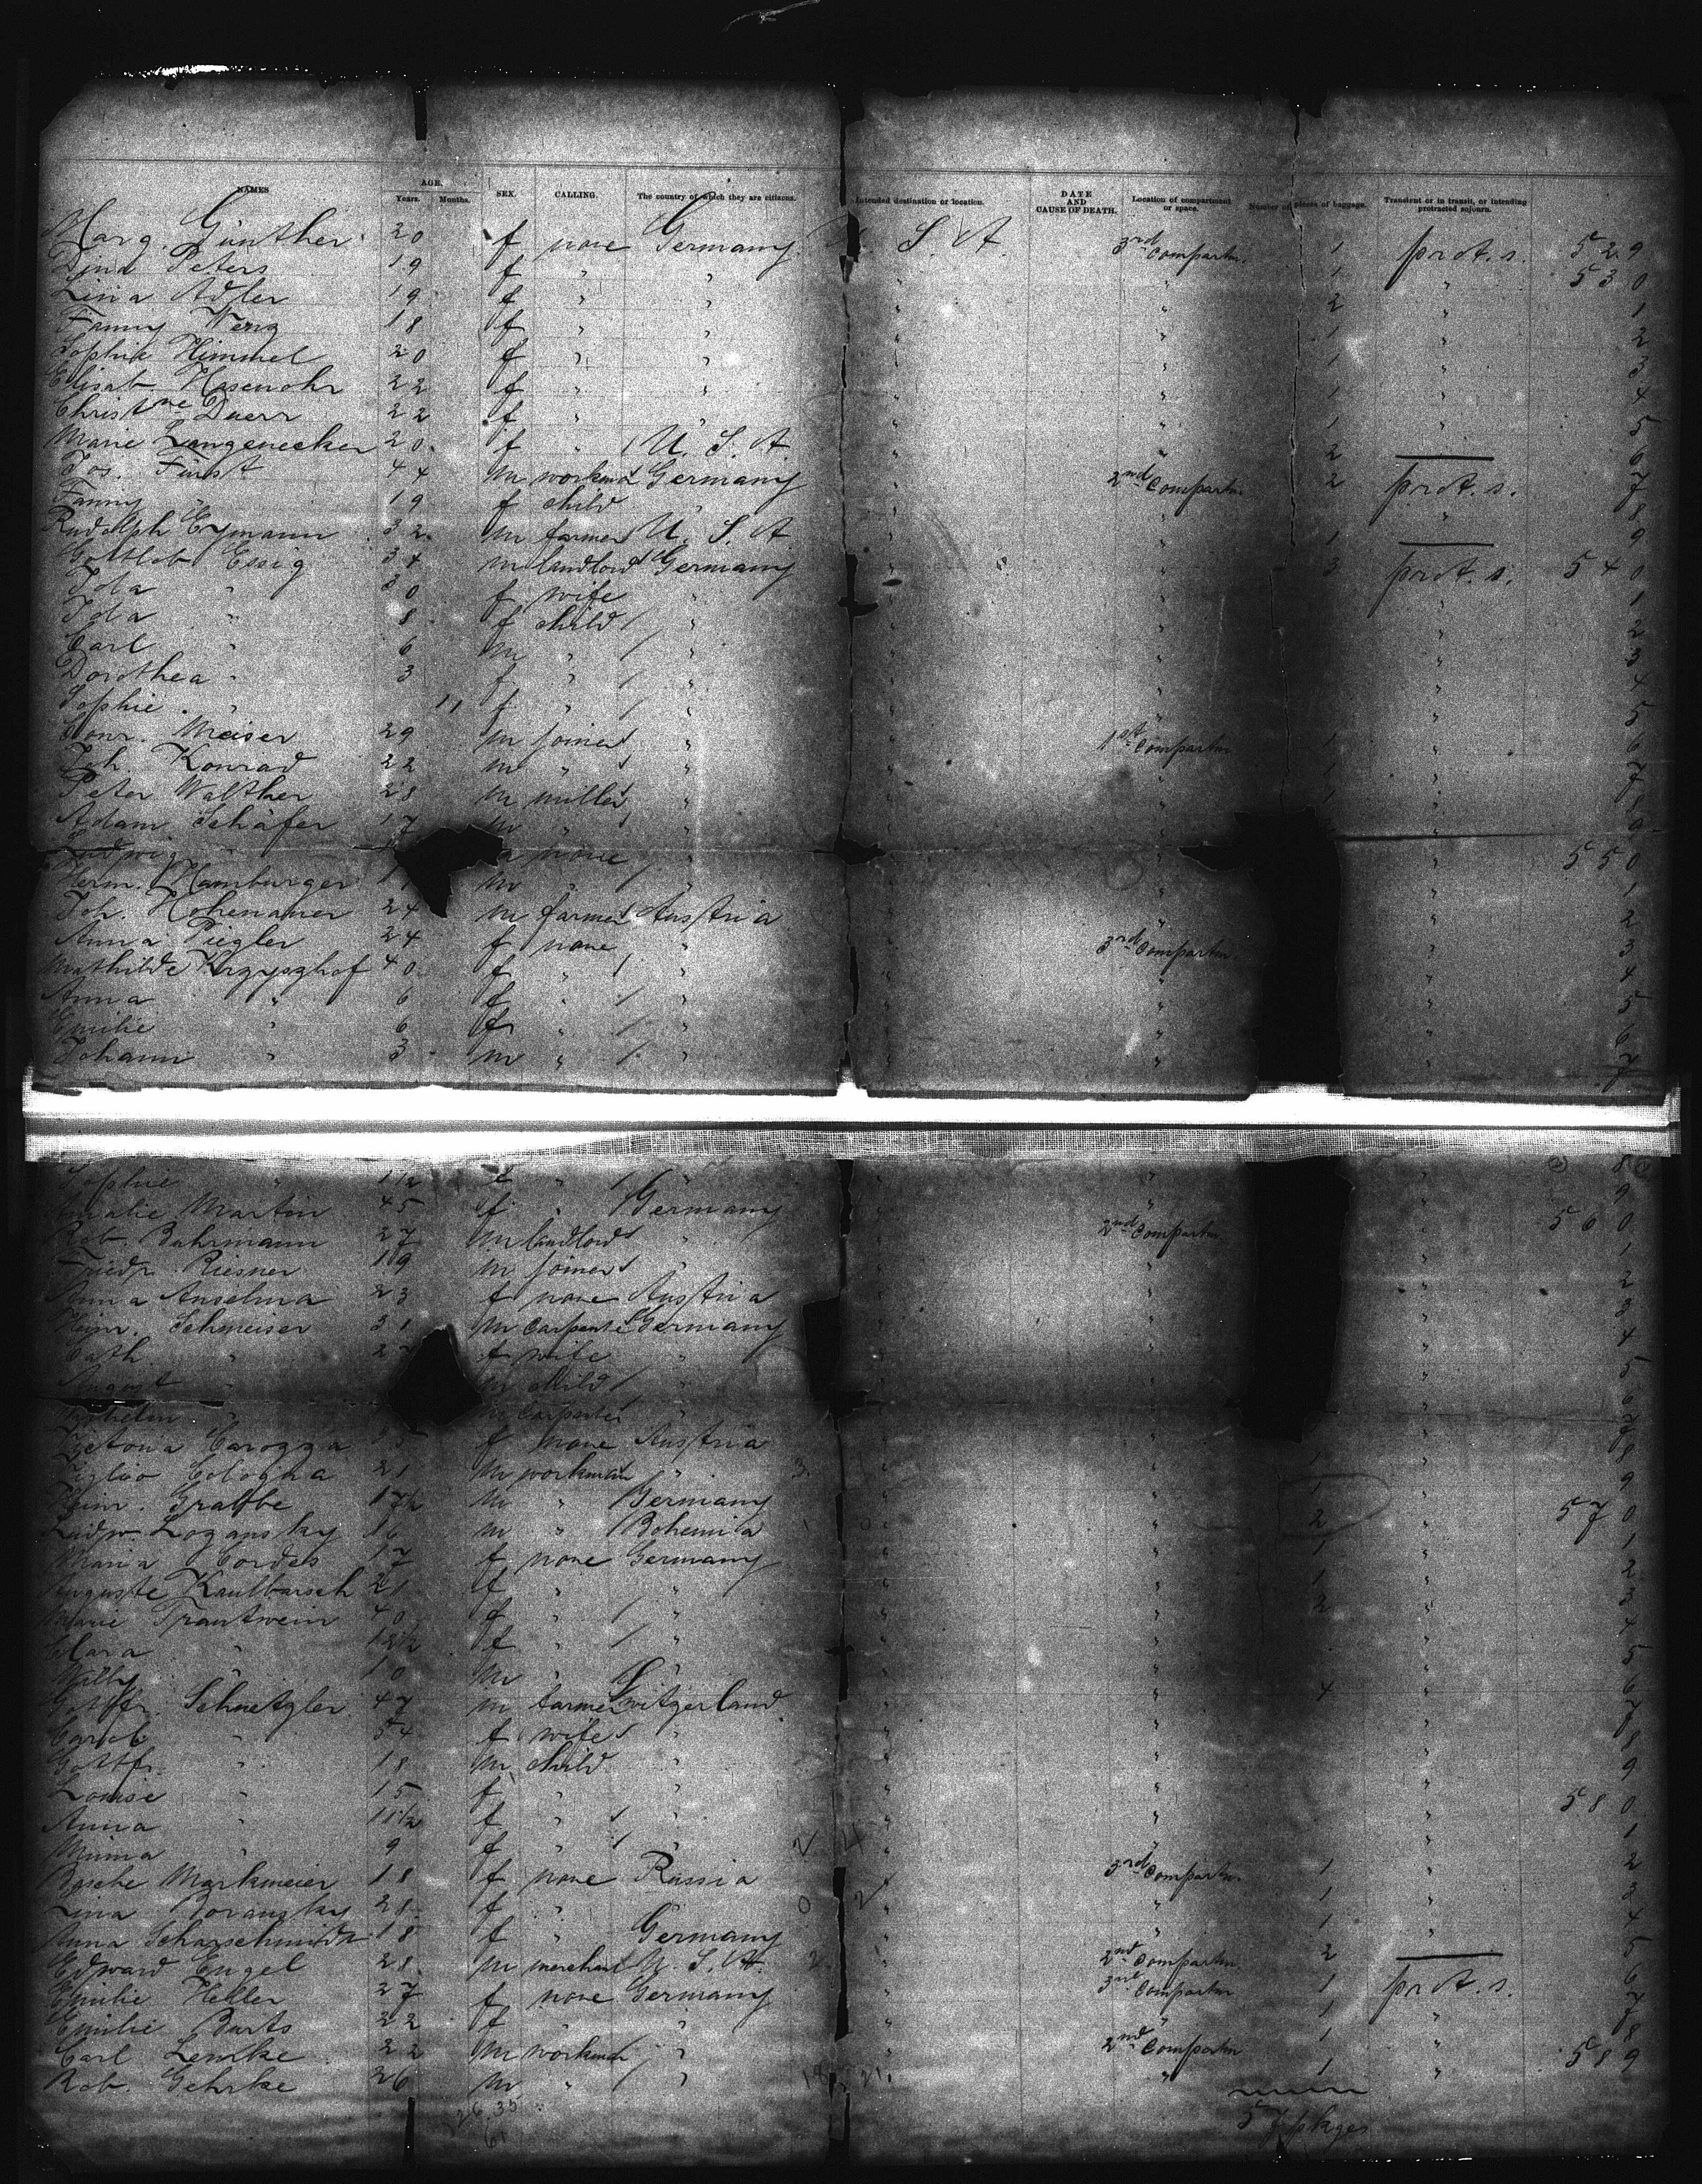 NAMES AGE. Years. Months. SEX. CALLING. The country of which they are citizens. Intended destination or location. DATE AND CAUSE OF DEATH. Location of compartment or space. Number of pieces of baggage. Transient or in transit, or intending protracted sojourn.
Marg. Günther 20 f none Germany U. S. A. 3rd Compartm. 1 prot. s. 529
Lina Peters 19 f " " " " 1 " 530
Lina Adler 19 f " " " " 2 " 1
Fanny 18 f " " " " 1 " 2
Sophie Himmel 20 f " " " " 1 " 3
Elisab. Hasenohr 22 f " " " " 1 " 4
Christine Duerr 22 f " " " " 1 5
Marie Langenecker 20 f " U. S. A. " " 2 — 6
Jos. Fürst 44 m workman Germany " 2nd Compartm. 2 prot. s. 7
Fanny " 19 f child " " " " 8
Rudolph Eymann 32 m farmer U. S. A " " 1 — 9
Gottlob Essig 34 m landlord Germany " " 3 prot. s. 540
Ida " 30 f wife " " " " 1
Ida " 8 f child " " " " 2
Carl " 6 m " " " " " 3
Dorothea " 3 f " " " " " 4
Sophie " 11 f " " " " " 5
Conr. Meiser 29 m joiner " " 1st Compartm 1 " 6
Joh. Konrad 22 m " " " " 1 " 7
Peter Walther 28 m miller " " " 1 " 8
Adam Schäfer 17 m " " " " " 9
Ludwig none " " 550
Herm. Hamburger m " " " " " 1
Joh. Hohenauer 24 m farmer Austria " " " 2
Anna Piegler 24 f none " " 3rd Compartm " 3
Mathilde Krzyszhof 40 f " " " " " 4
Anna " 6 f " " " " " 5
Emilie " 6 f " " " " " 6
Johann " 3 m " " " " " 7
Sophie " 1½ f " " " " " 8
Amalie Martin 45 f " Germany " " " 9
Rob. Bahrmann 27 m landlord " " 2nd Compartm " 560
Friedr. Riesner 19 m joiner " " " " 1
Anna Anselma 23 f none Austria " " " 2
Heinr. Schmeiser 31 m Carpenter Germany " " " 3
Cath. " f wife " " " " 4
August " m child " " " " 5
Wilhelm " m Carpenter " " " " 6
Victoria Carozza f none Austria " " 1 " 7
Cologna 21 m workman " " " 1 " 8
Heinr. Grabbe 17½ m " Germany " " 1 " 9
Ludw. Logansky 16 m " Bohemia " " 2 " 570
Maria Cordes 17 f none Germany " " 1 " 1
Auguste Kaulbarsch 21 f " " " " 1 " 2
Marie Trautwein 40 f " " " " 2 " 3
Clara " 12½ f " " " " " 4
Willy " 10 m " " " " " 5
Gottfr. Schnetzler 47 m farmer Switzerland " " 4 " 6
" 54 f wife " " " " 7
Gottfr. " 18 m child " " " " 8
Louise " 15 f " " " " " 9
Anna " 11½ f " " " " " 580
Minna " 9 f " " " " " 1
Markmeier 18 f none Russia " 3rd Compartm. 1 " 2
Lina 28 f " " " " 1 " 3
Anna Scharschmidt 18 f " Germany " " 1 " 4
Edward Engel 28 m merchant U. S. A. " 2nd Compartm. 2 — 5
Emilie Heller 27 f none Germany " 3rd Compartm 1 prot. s. 6
Emilie Barts 22 f " " " " 1 " 7
Carl Lemke 22 m workman " " 2nd Compartm 1 " 8
Rob. Gehrke 26 m " " " " 1 " 589
57 pkges